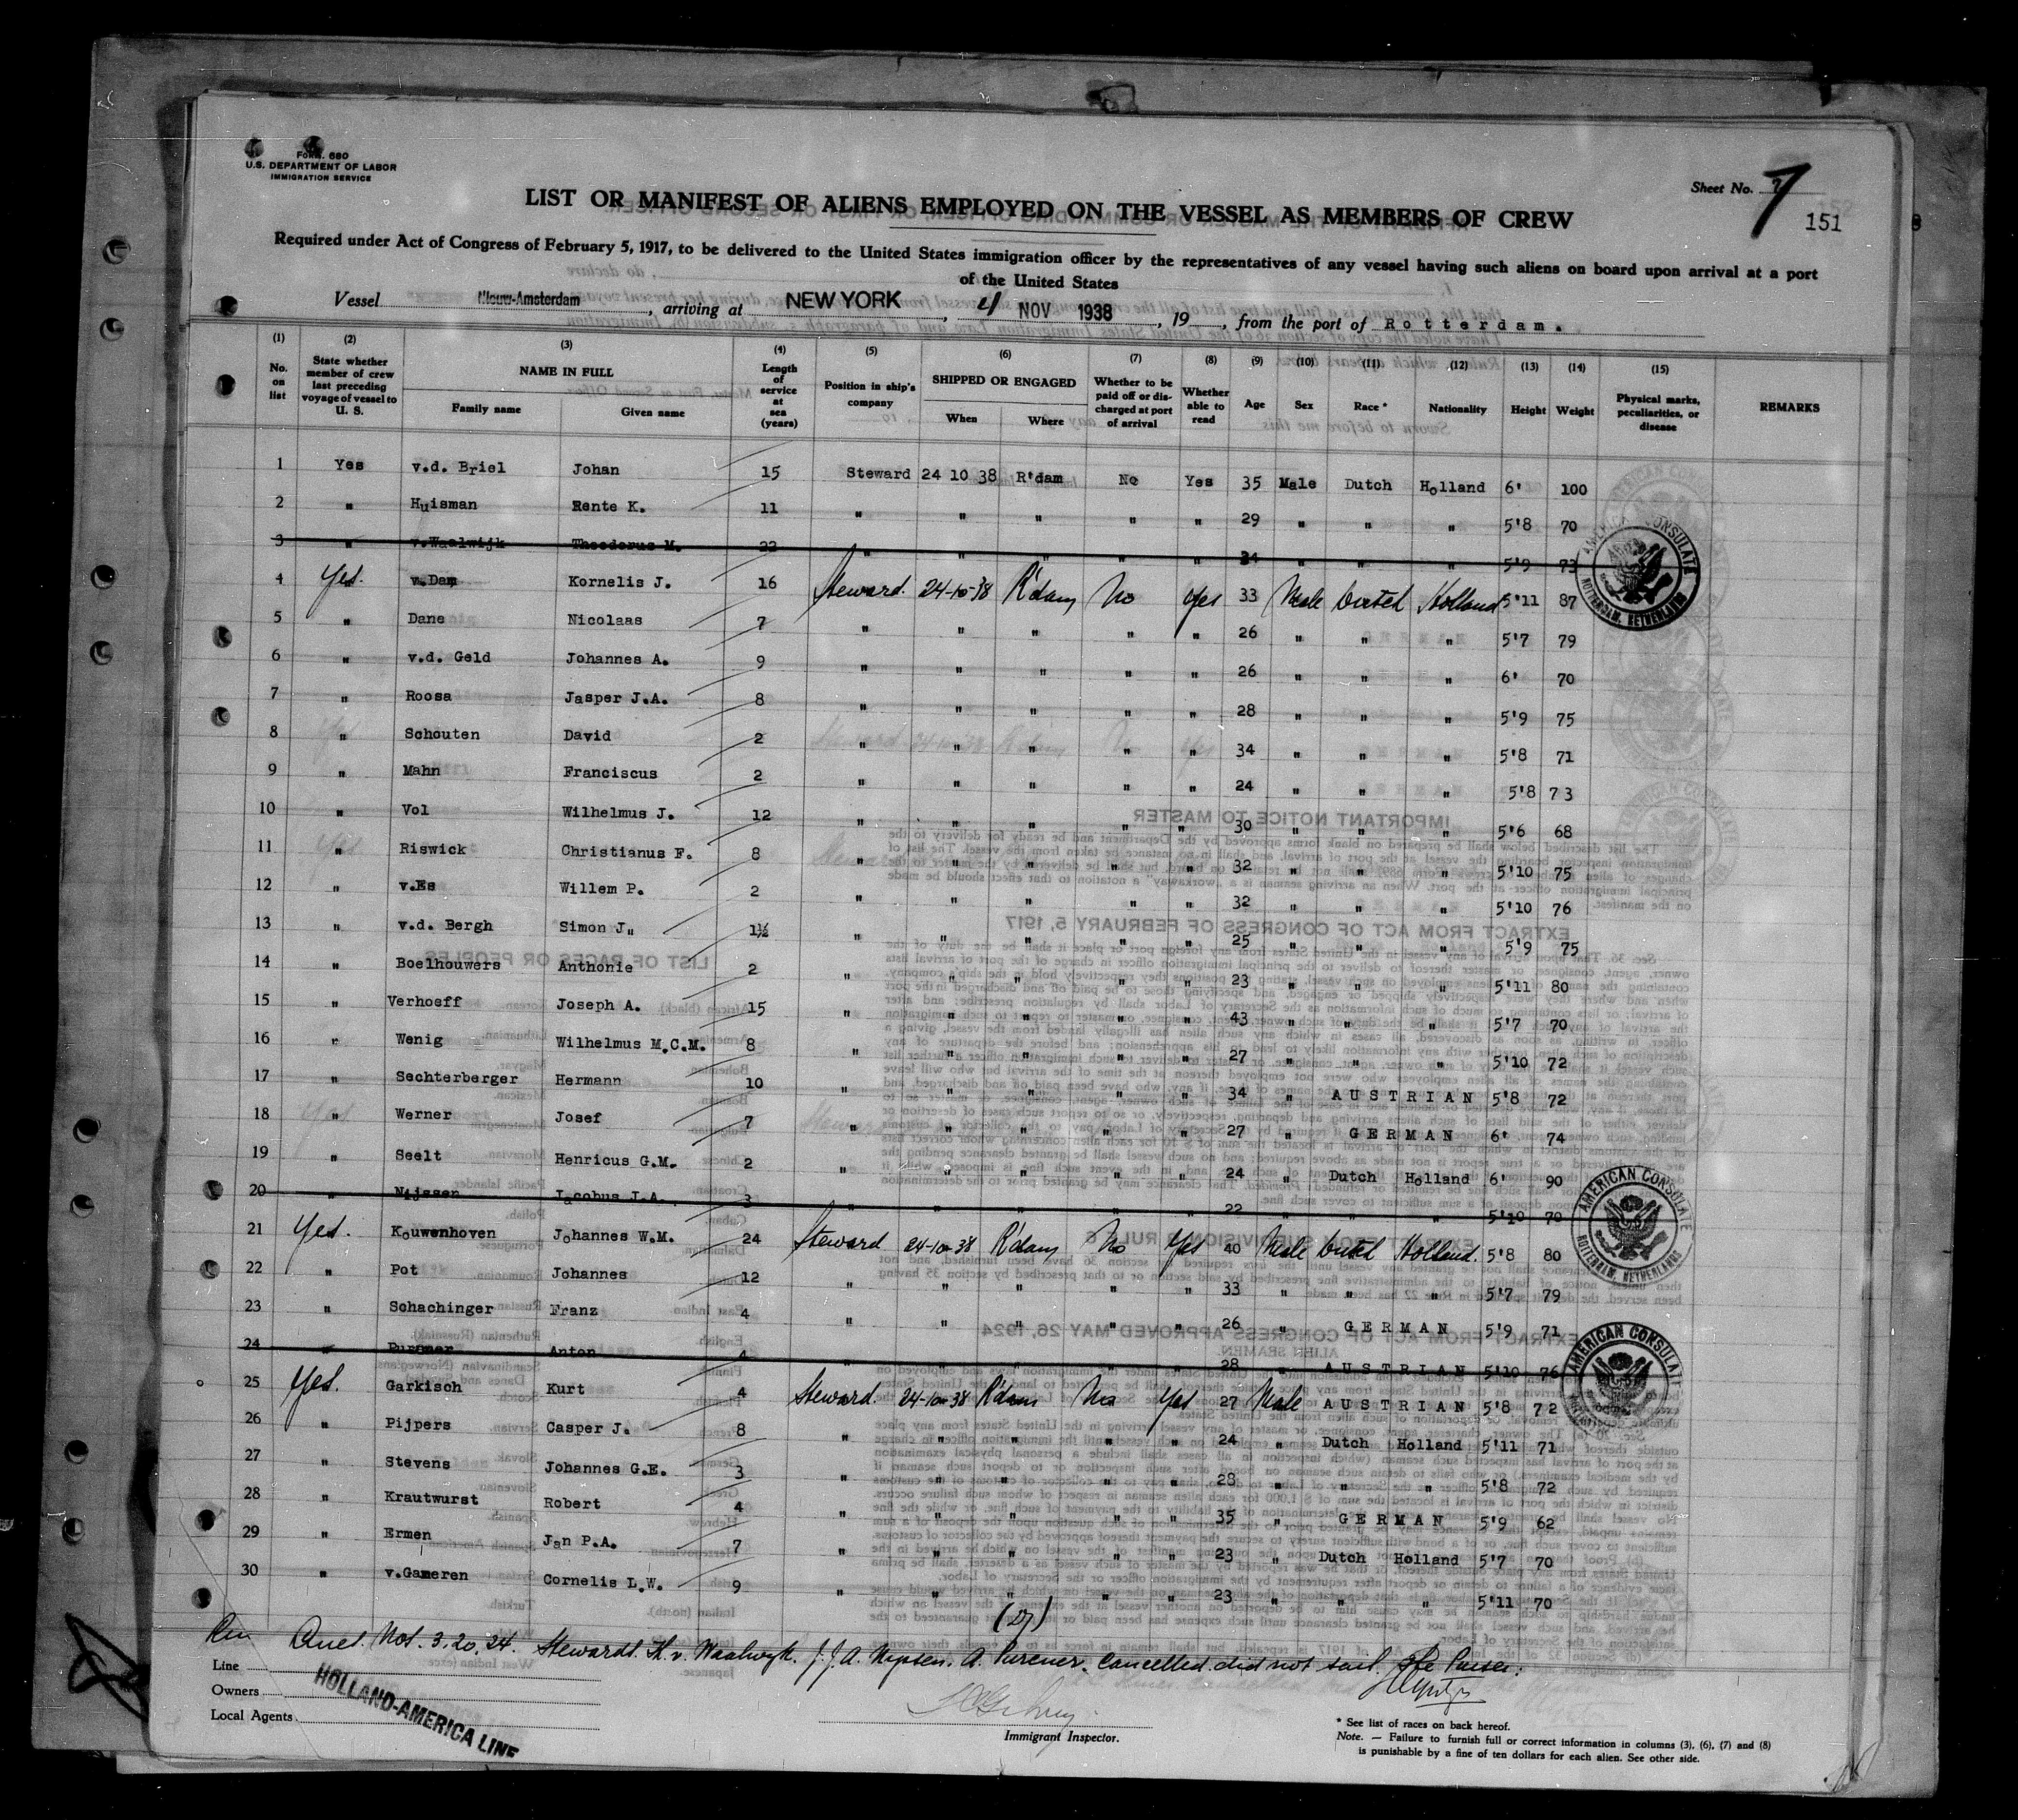 Form 680
U.S. DEPARTMENT OF LABOR
IMMIGRATION SERVICE
Sheet No. 7
7
151
LIST OR MANIFEST OF ALIENS EMPLOYED ON THE VESSEL AS MEMBERS OF CREW
Required under Act of Congress of February 5, 1917, to be delivered to the United States immigration officer by the representatives of any vessel having such aliens on board upon arrival at a port
of the United States
Vessel Nieuw-Amsterdam, arriving at NEW YORK, 4 NOV 1938, 19, from the port of Rotterdam.
(1) (2) (3) (4) (5) (6) (7) (8) (9) (10) (11) (12) (13) (14) (15)
No. on list State whether member of crew last preceding voyage of vessel to U. S. NAME IN FULL Family name Given name Length of service at sea (years) Position in ship's company SHIPPED OR ENGAGED When Where Whether to be paid off or discharged at port of arrival Whether able to read Age Sex Race * Nationality Height Weight Physical marks, peculiarities, or disease REMARKS
1 Yes v.d. Briel Johan 15 Steward 24 10 38 R'dam No Yes 35 Male Dutch Holland 6' 100
2 " Huisman Rente K. 11 " " " " " 29 " " " 5'8 70
3 " v.Waalwijk Theodorus M. 22 " " " " " 34 " " " 5'9 73
4 Yes. v.Dam Kornelis J. 16 Steward. 24-10-38 R'dam No Yes 33 Male Dutch Holland 5'11 87
5 " Dane Nicolaas 7 " " " " " 26 " " " 5'7 79
6 " v.d. Geld Johannes A. 9 " " " " " 26 " " " 6' 70
7 " Roosa Jasper J.A. 8 " " " " " 28 " " " 5'9 75
8 " Schouten David 2 " " " " " 34 " " " 5'8 71
9 " Mahn Franciscus 2 " " " " " 24 " " " 5'8 73
10 " Vol Wilhelmus J. 12 " " " " " 30 " " " 5'6 68
11 " Riswick Christianus F. 8 " " " " " 32 " " " 5'10 75
12 " v.Es Willem P. 2 " " " " " 32 " " " 5'10 76
13 " v.d. Bergh Simon J. 1½ " " " " " 25 " " " 5'9 75
14 " Boelhouwers Anthonie 2 " " " " " 23 " " " 5'11 80
15 " Verhoeff Joseph A. 15 " " " " " 43 " " " 5'7 70
16 " Wenig Wilhelmus M.C.M. 8 " " " " " 27 " " " 5'10 72
17 " Sechterberger Hermann 10 " " " " " 34 " AUSTRIAN 5'8 72
18 " Werner Josef 7 " " " " " 27 " GERMAN 6' 74
19 " Seelt Henricus G.M. 2 " " " " " 24 " Dutch Holland 6' 90
20 " Nijssen Jacobus J.A. 3 " " " " " 22 " " " 5'10 70
21 Yes. Kouwenhoven Johannes W.M. 24 Steward 24-10-38 R'dam No Yes 40 Male Dutch Holland. 5'8 80
22 " Pot Johannes 12 " " " " " 33 " " " 5'7 79
23 " Schachinger Franz 4 " " " " " 26 " GERMAN 5'9 71
24 " Anton 4 " " " " " 28 " AUSTRIAN 5'10 76
25 Yes. Garkisch Kurt 4 Steward. 24-10-38 R'dam No Yes 27 Male AUSTRIAN 5'8 72
26 " Pijpers Casper J. 8 " " " " " 24 " Dutch Holland 5'11 71
27 " Stevens Johannes G.E. 3 " " " " " 28 " " " 5'8 72
28 " Krautwurst Robert 4 " " " " " 35 " GERMAN 5'9 62
29 " Ermen Jan P.A. 7 " " " " " 23 " Dutch Holland 5'7 70
30 " v.Gameren Cornelis L.W. 9 " " " " " 23 " " " 5'11 70
(27)
3. 20. 24. Stewards Th. v. Waalwyk. J.J.A. Nijssen. A. cancelled did not sail. The Purser:
Line
Owners
Local Agents
HOLLAND-AMERICA LINE
Immigrant Inspector.
* See list of races on back hereof.
Note. — Failure to furnish full or correct information in columns (3), (6), (7) and (8)
is punishable by a fine of ten dollars for each alien. See other side.
AMERICAN CONSULATE
ROTTERDAM, NETHERLANDS
AMERICAN CONSULATE
ROTTERDAM, NETHERLANDS
AMERICAN CONSULATE